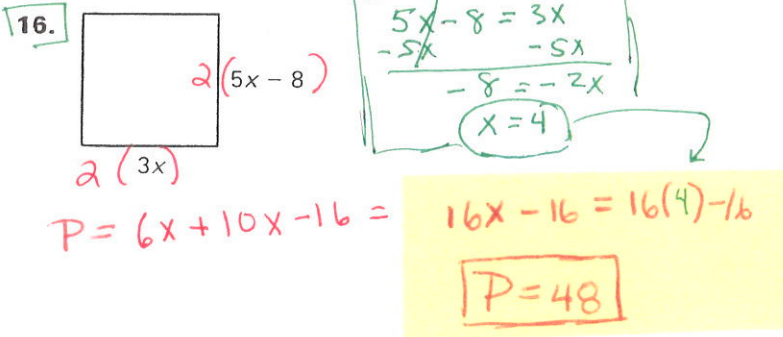 16.
2(5x – 8)
2(3x)
5x - 8 = 3x
- 5x - 5x
- 8 = - 2x
x = 4
P = 6x + 10x - 16 = 16x - 16 = 16(4) - 16
P = 48